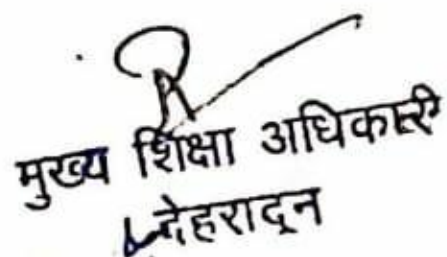 मुख्य शिक्षा अधिकारी
देहरादून